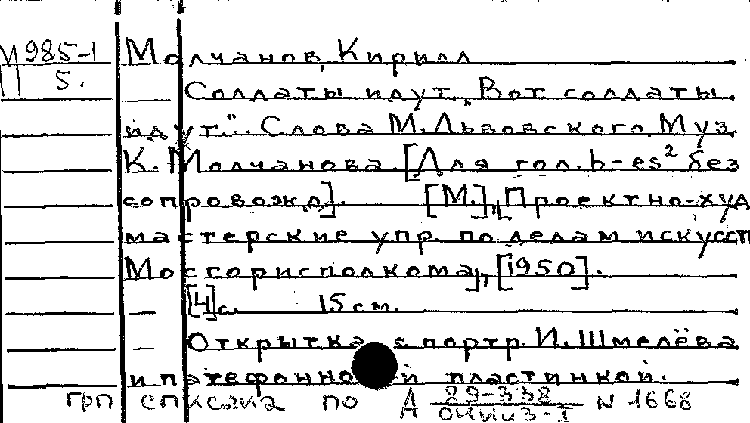 М 985-1 Молчанов, Кирилл
5. Солдаты идут. „Вот солдаты
идут..." Слова М. Львовского. Муз.
К. Молчанова [Для гол. b-es² без
сопровожд]. [М.], [Проектно-худ.
мастерские упр. по делам искусств
Мосгорисполкома], [1950].
[4] с. 15 см.
Открытка с портр. И. Шмелёва
и патефонной пластинкой.
ГРП списана по А 29-338 N 1668